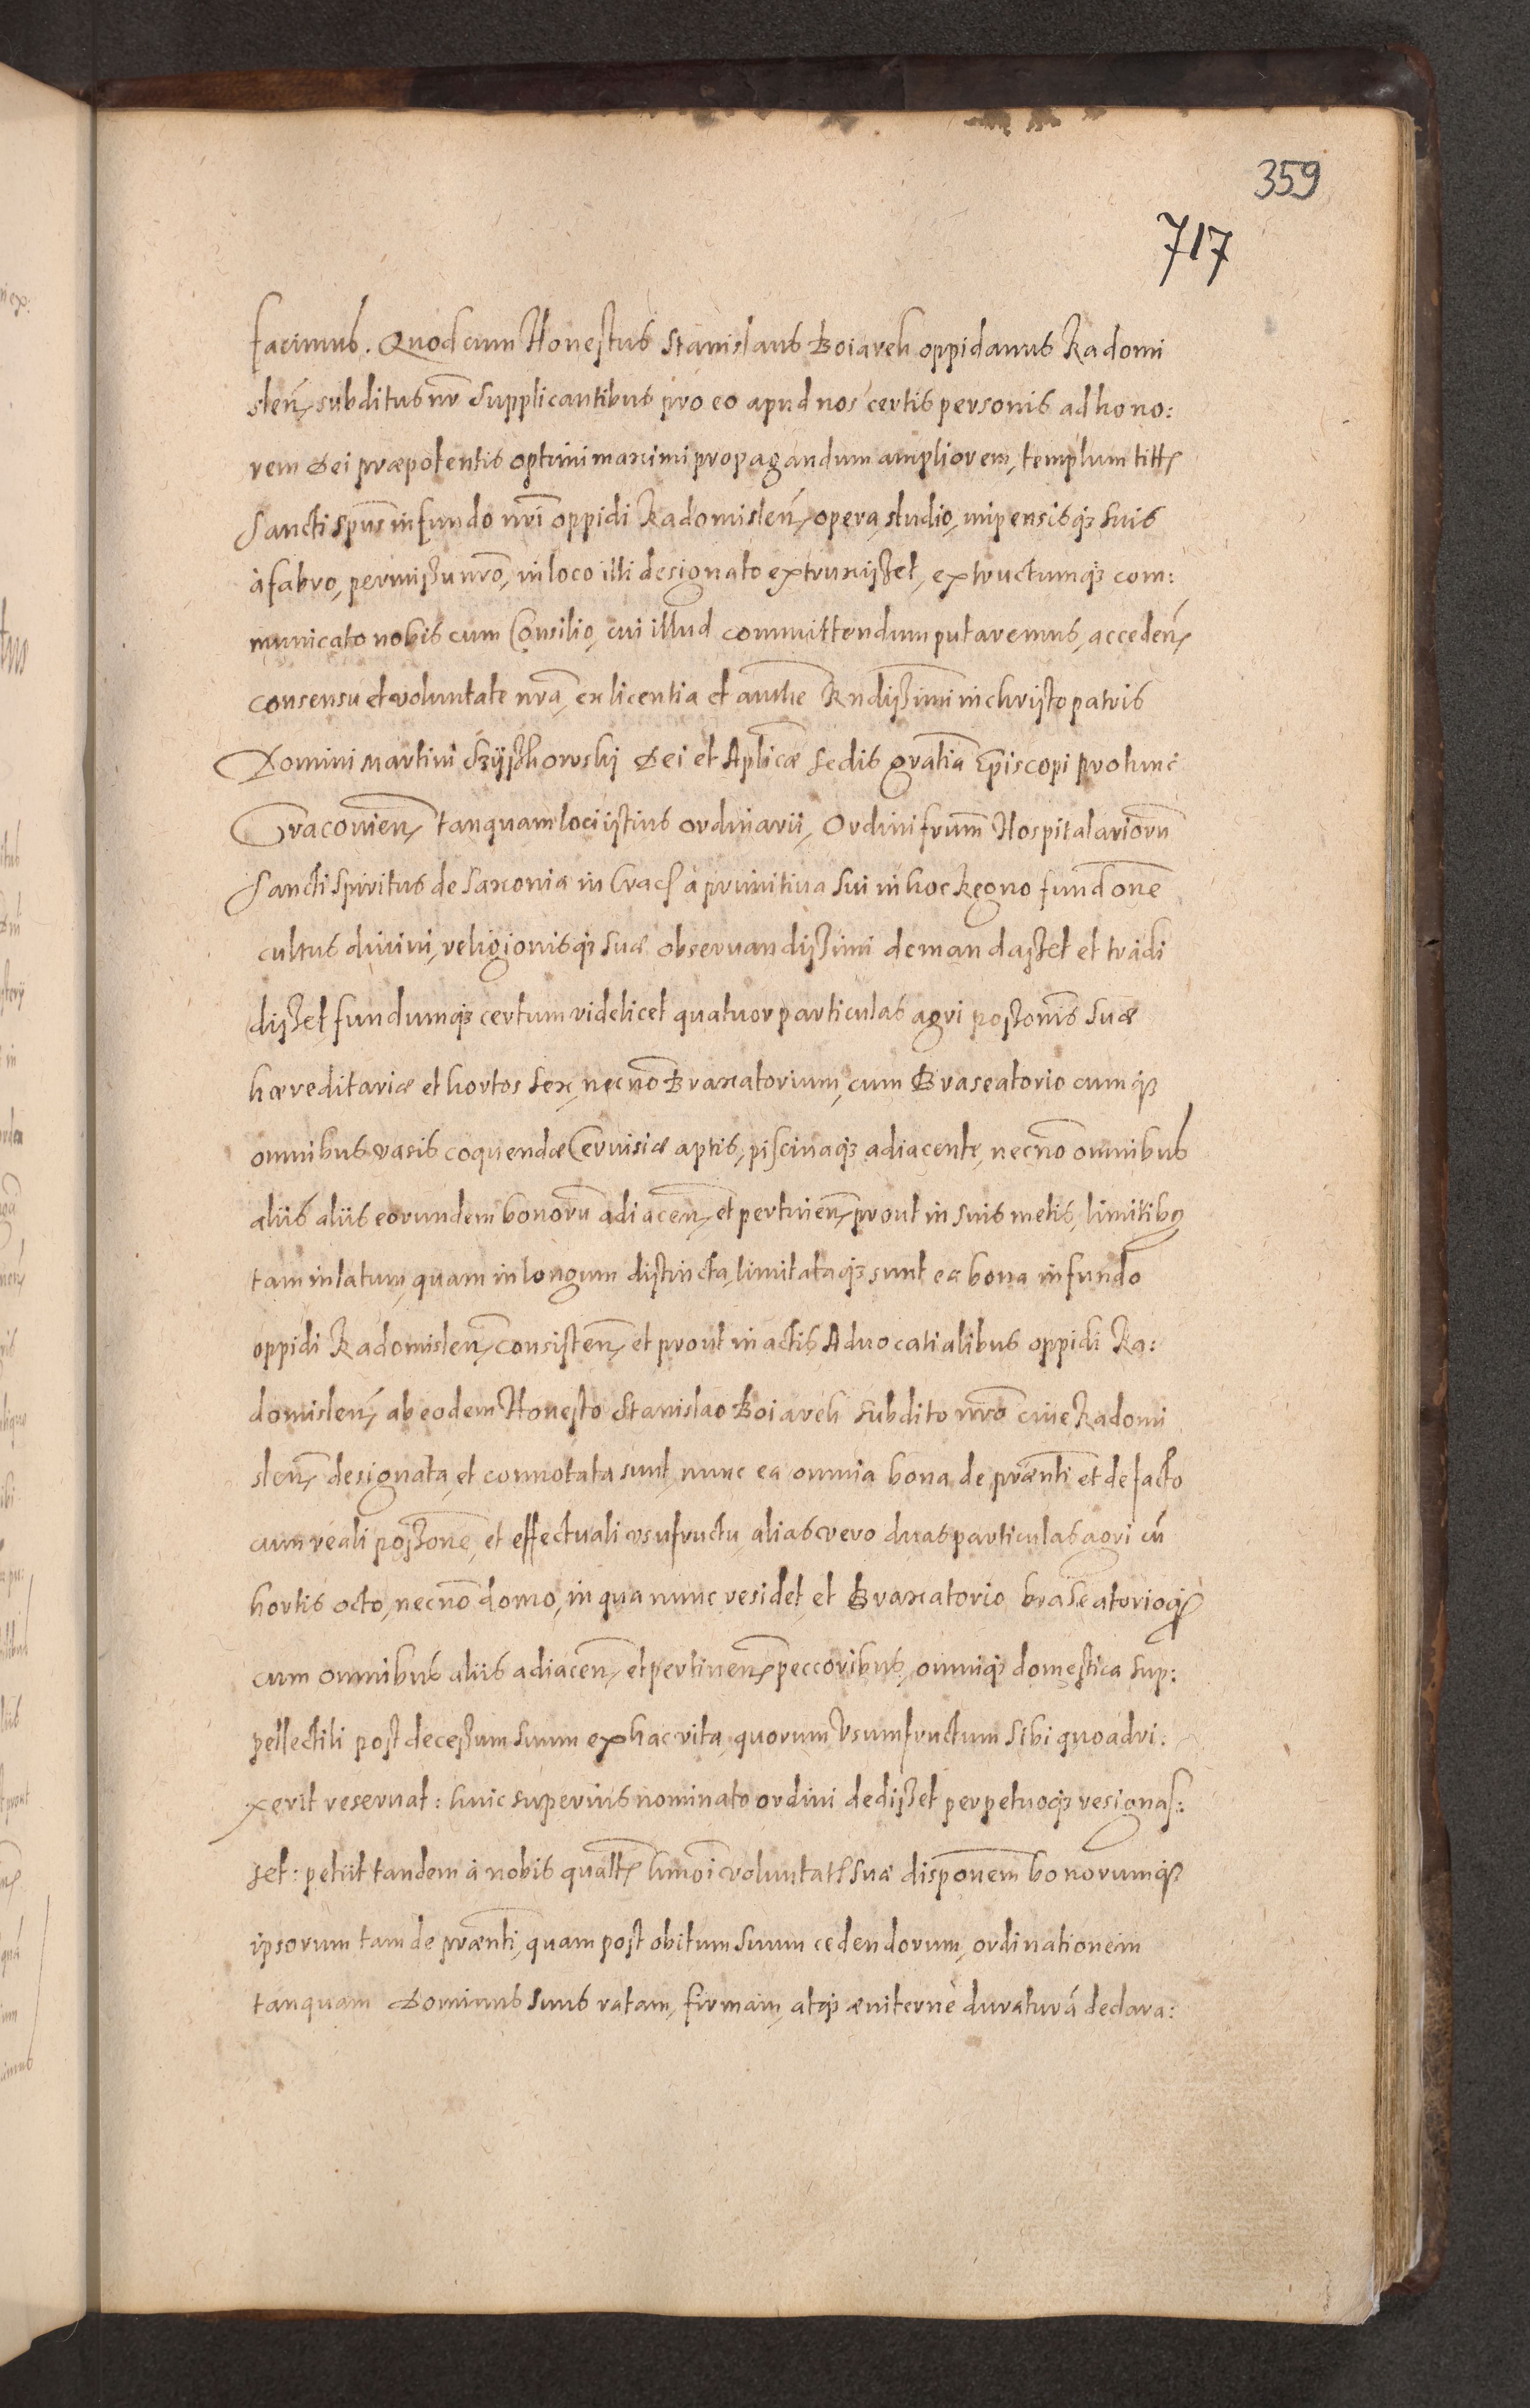 359
717
facimus. Quod cum Honestus Stanislaus Boiarek oppidanus Radomi
slen̄, subditus nr̄ supplicantibus pro eo apud nos certis personis ad hono:
rem Dei præpotentis optimi maximi propagandum ampliorem, templum titt̄
Sancti Spūs in fundo nrī oppidi Radomislen̄, opera, studio, impensisq₃ suis
à fabro, permissu nrō, in loco illi designato extruxisset, extructumq₃ com:
municato nobis cum Consilio, cui illud committendum putaremus, acceden̄
consensu et voluntate nrā, ex licentia et auth̄e Rndissimi in christo patris
Domini Martini Szyszkowsky Dei et Aplicæ sedis gratia Episcopi pro tunc
Cracouien̄ tanquam loci istius ordinarii, Ordini frum̄ Hospitalariorū
Sancti Spiritus de Saxonia in Crac̄ a primitiua sui in hoc Regno fund̄one
cultus diuini, religionisq₃ suæ obseruandissimi demandasset et tradi
disset fundumq₃ certum videlicet quatuor particulas agri possonīs suæ
hæreditariæ et hortos sex, necnō Braxatorium, cum Braseatorio cumq₃
omnibus vasis coquendæ Ceruisiæ aptis, piscinaq₃ adiacente, necnō omnibus
aliis aliis eorundem bonorū adiacen̄, et pertinen̄, prout in suis metis, limitibq
tam in latum, quam in longum distincta, limitataq₃ sunt ea bona in fundo
oppidi Radomislen̄, consisten̄, et prout in actis Aduocatialibus oppidi Ra:
domislen̄ ab eodem Honesto Stanislao Boiarek subdito nrō ciue Radomi
slen̄ designata, et connotata sunt, nunc ea omnia bona de præntī et de facto
cum reali possonē, et effectuali vsufructu, alias vero duas particulas agri cū
hortis octo, necnō domo, in qua nunc residet, et Braxatorio braseatorioq₃
cum omnibus aliis adiacen̄, et pertinen̄, peccoribus, omniq₃ domestica sup:
pellectili post decessum suum ex hac vita, quorum Vsumfructum sibi quoad vi:
xerit reseruat: huic superius nominato ordini dedisset perpetuoq₃ resignas:
set: petiit tandem à nobis quatt̄ hmōi voluntat̄ suæ disponem̄ bonorumq₃
ipsorum tam de præntī, quam post obitum suum cedendorum, ordinationem
tanquam Dominus suus ratam, firmam, atq₃ æuiternè duraturā declara: